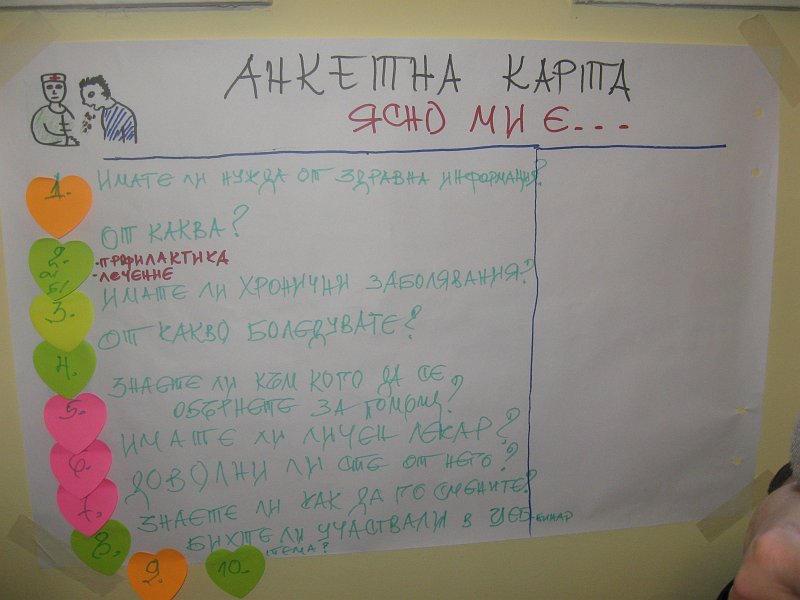 АНКЕТНА КАРТА
ЯСНО МИ Е...
1. ИМАТЕ ЛИ НУЖДА ОТ ЗДРАВНА ИНФОРМАЦИЯ?
ОТ КАКВА?
2. - ПРОФИЛАКТИКА
- ЛЕЧЕНИЕ
ИМАТЕ ЛИ ХРОНИЧНИ ЗАБОЛЯВАНИЯ?
3. ОТ КАКВО БОЛЕДУВАТЕ?
4. ЗНАЕТЕ ЛИ КЪМ КОГО ДА СЕ
ОБЪРНЕТЕ ЗА ПОМОЩ?
5. ИМАТЕ ЛИ ЛИЧЕН ЛЕКАР?
6. ДОВОЛНИ ЛИ СТЕ ОТ НЕГО?
7. ЗНАЕТЕ ЛИ КАК ДА ГО СМЕНИТЕ?
8. БИХТЕ ЛИ УЧАСТВАЛИ В УЕБ-БИНАР
ТЕМА?
9. 10.